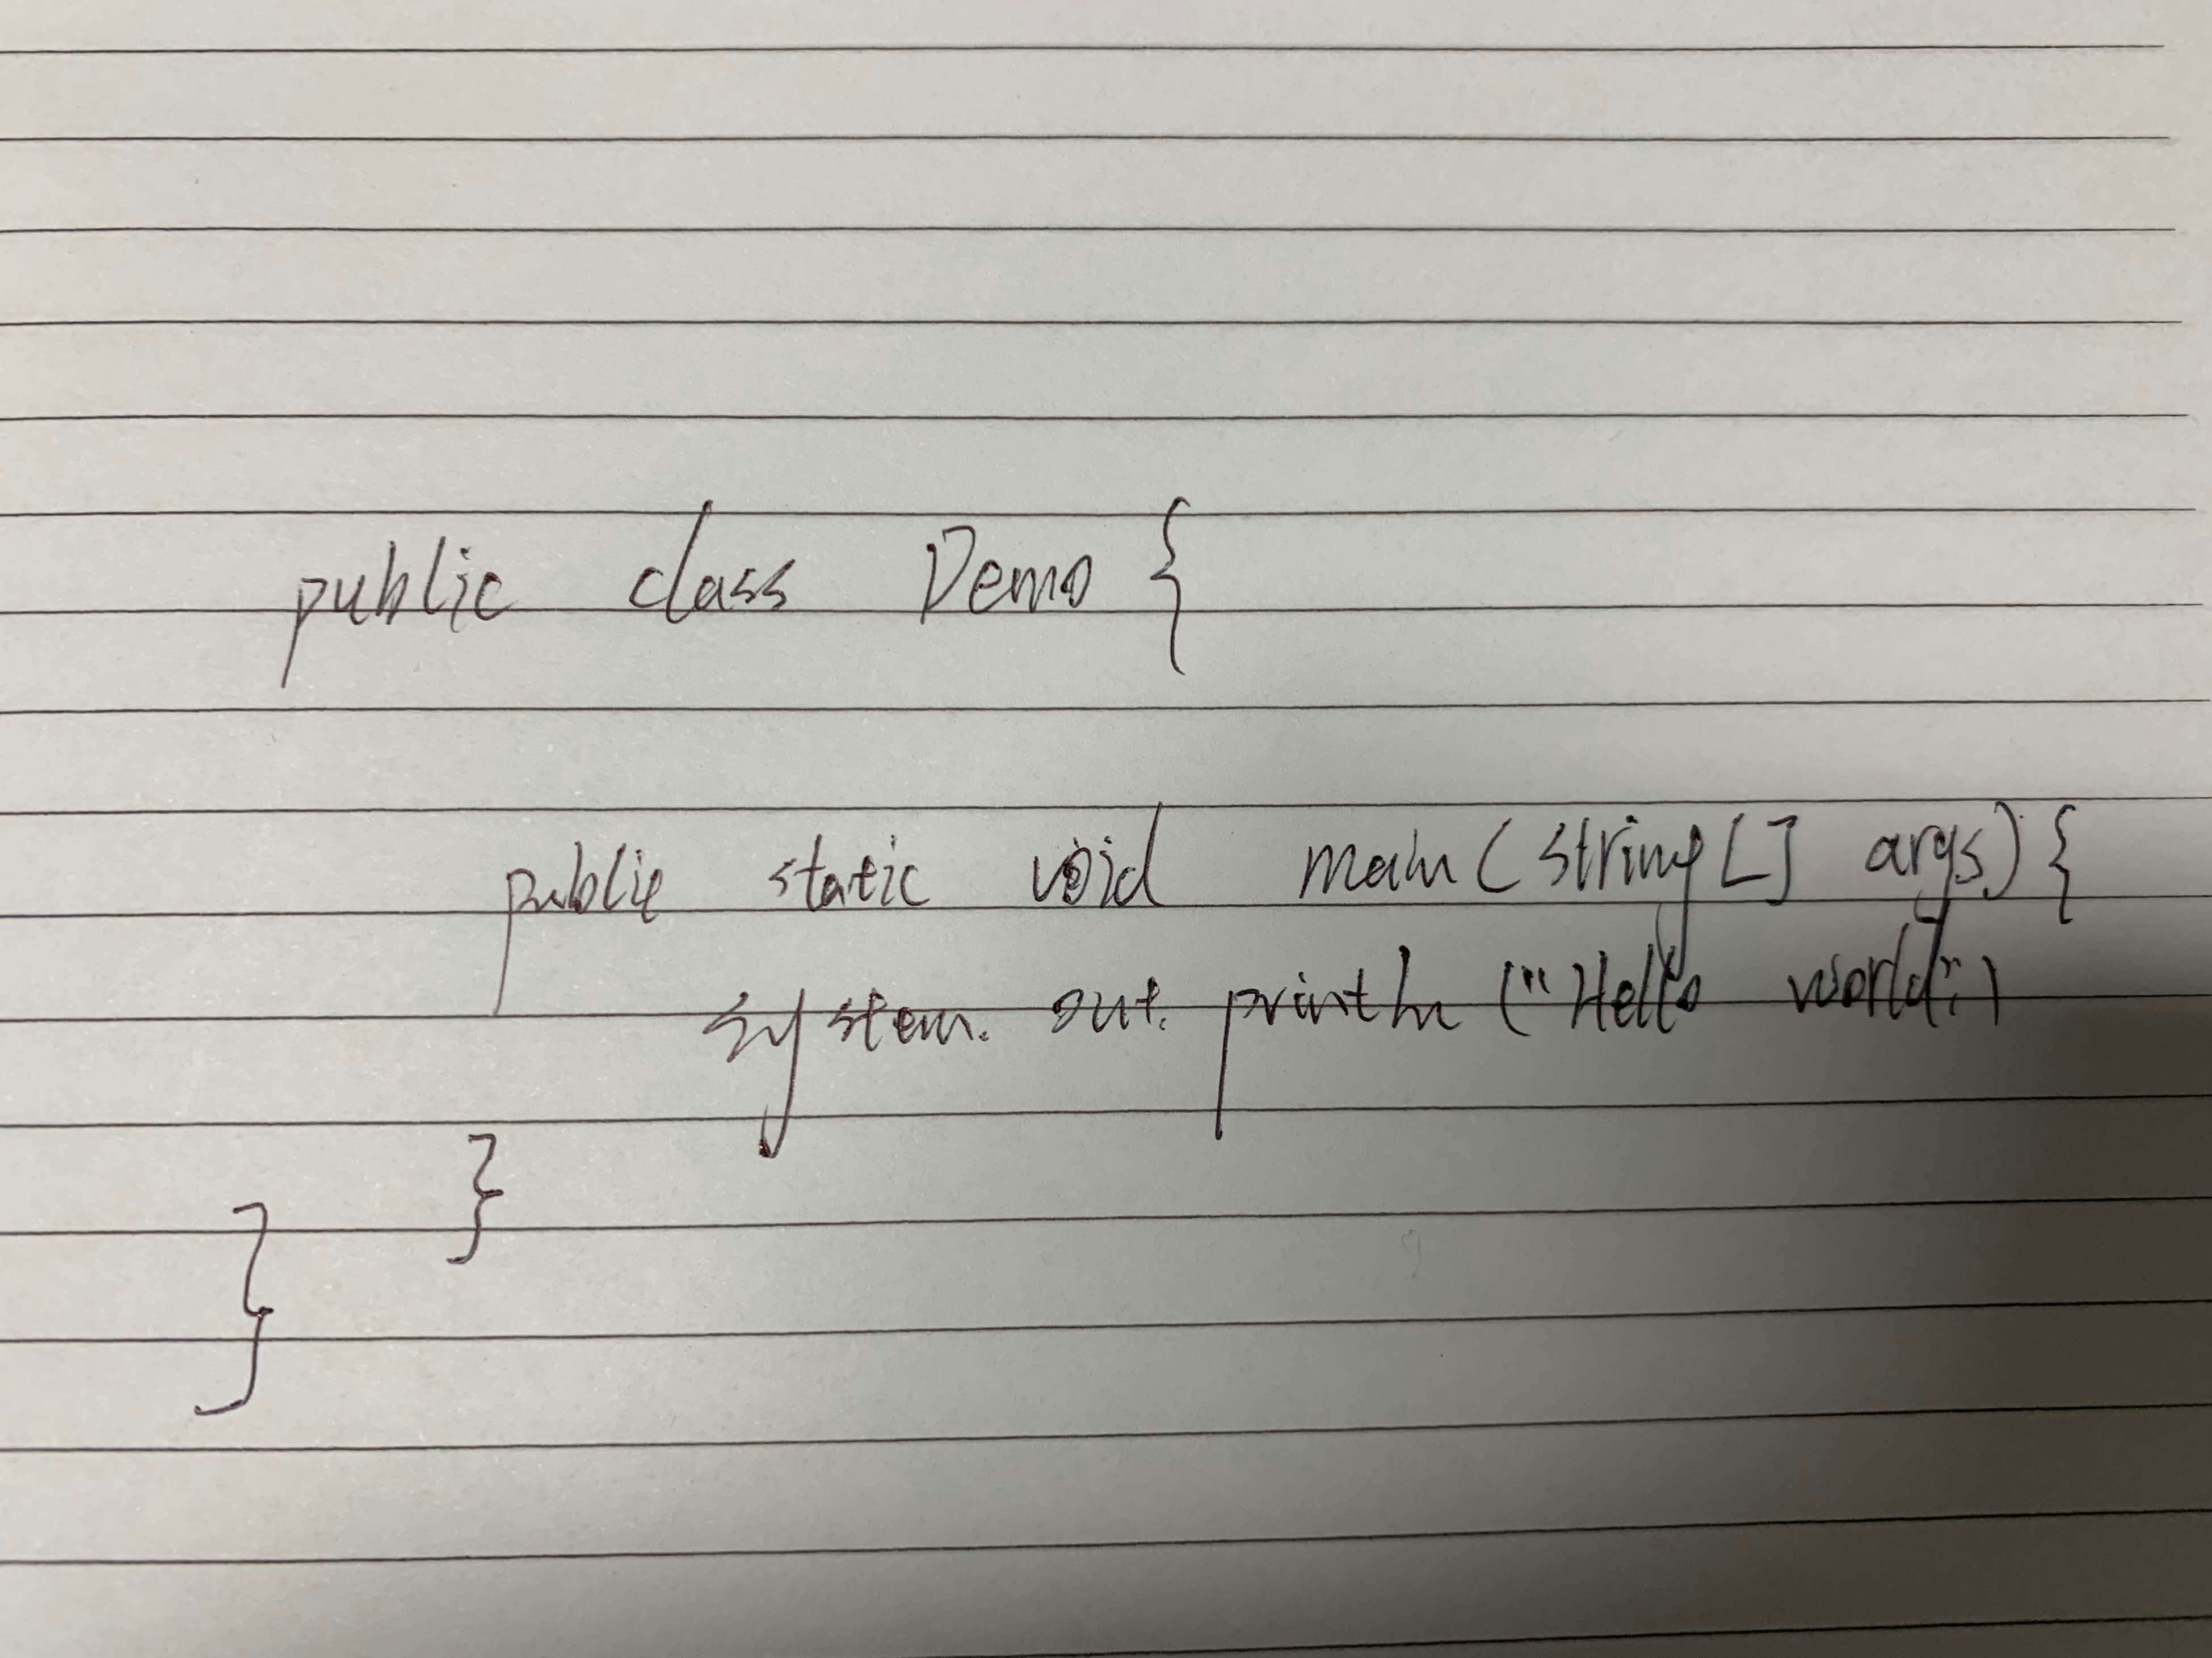 public class Demo {
public static void main(String[] args) {
system.out.println("Hello world";)
}
}